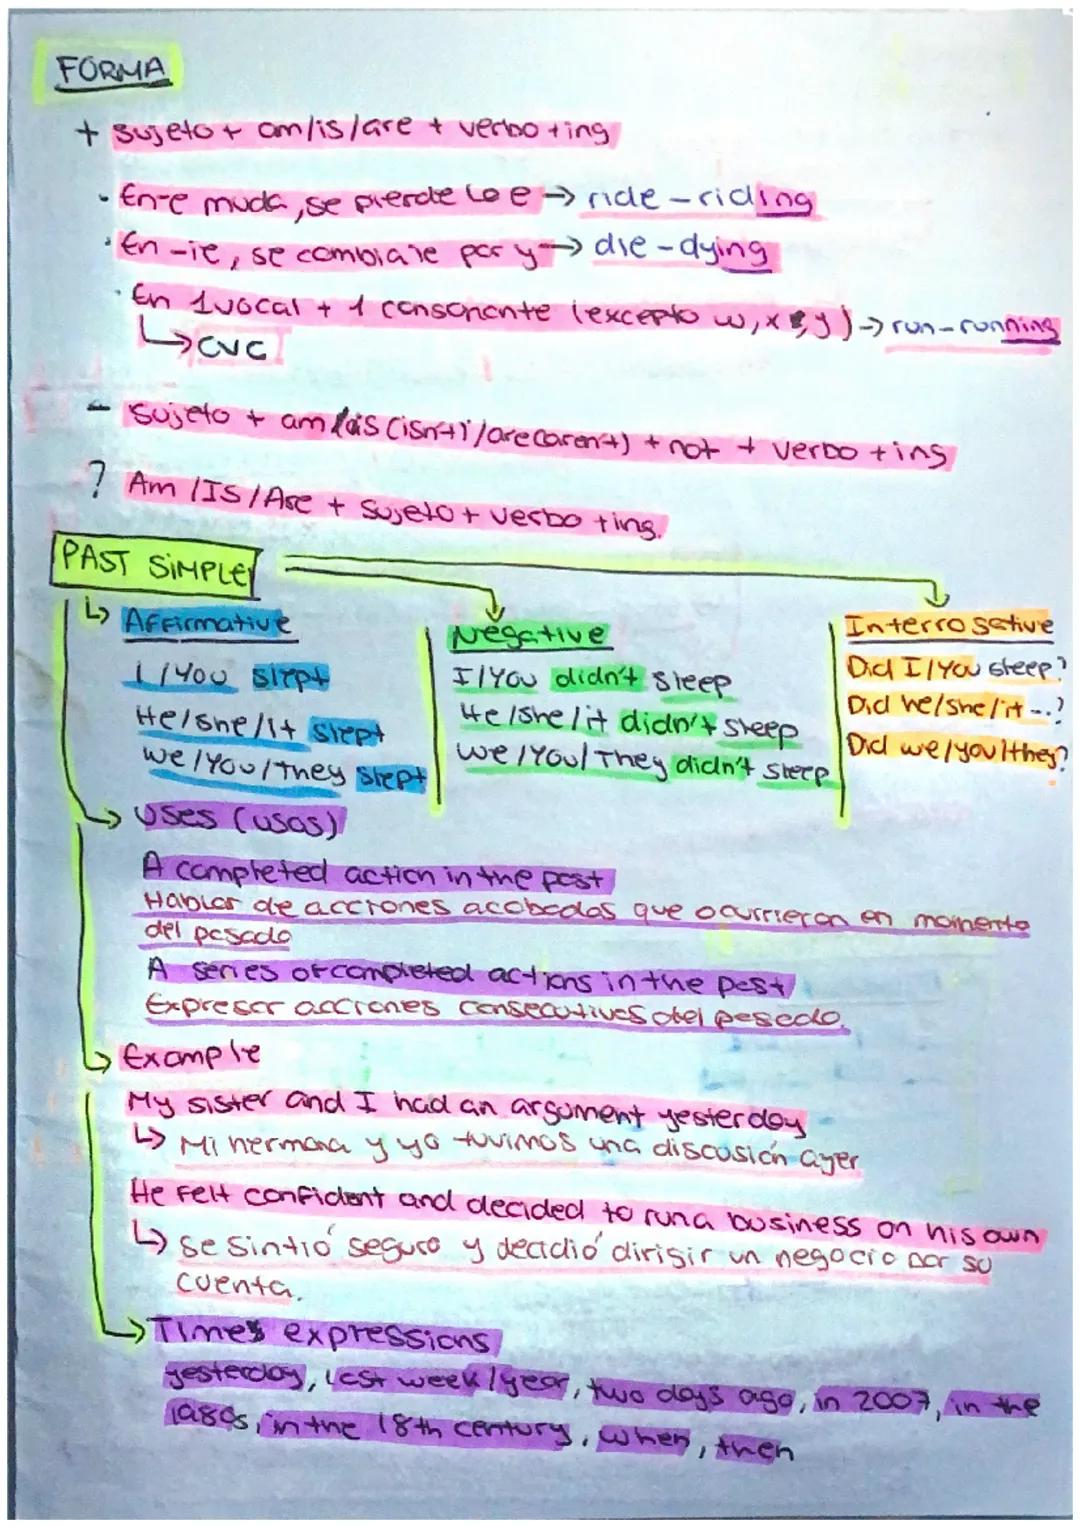 FORMA
+ sujeto + am/is/are + verbo + ing
· En -e muda, se pierde la e → ride - riding
· En -ie, se cambia ie por y → die - dying
· En 1 vocal + 1 consonante (excepto w, x, y) → run - running
↳ CVC
- sujeto + am / is (isn't) / are (aren't) + not + verbo + ing
? Am / Is / Are + sujeto + verbo + ing.
PAST SIMPLE
↳ Affirmative
I / You slept
He/she/It slept
We / You / They slept
Negative
I/You didn't sleep
He/she/it didn't sleep
We/You/They didn't sleep
Interrogative
Did I/You sleep?
Did he/she/it -..?
Did we/you/they?
→ Uses (usos)
A completed action in the past
Hablar de acciones acabadas que ocurrieron en momento
del pasado
A series of completed actions in the past
Expresar acciones consecutivas del pasado.
→ Example
My sister and I had an argument yesterday
↳ Mi hermana y yo tuvimos una discusión ayer
He felt confident and decided to run a business on his own
↳ Se sintió seguro y decidió dirigir un negocio por su
cuenta.
→ Times expressions
yesterday, last week/year, two days ago, in 2007, in the
1980s, in the 18th century, when, then